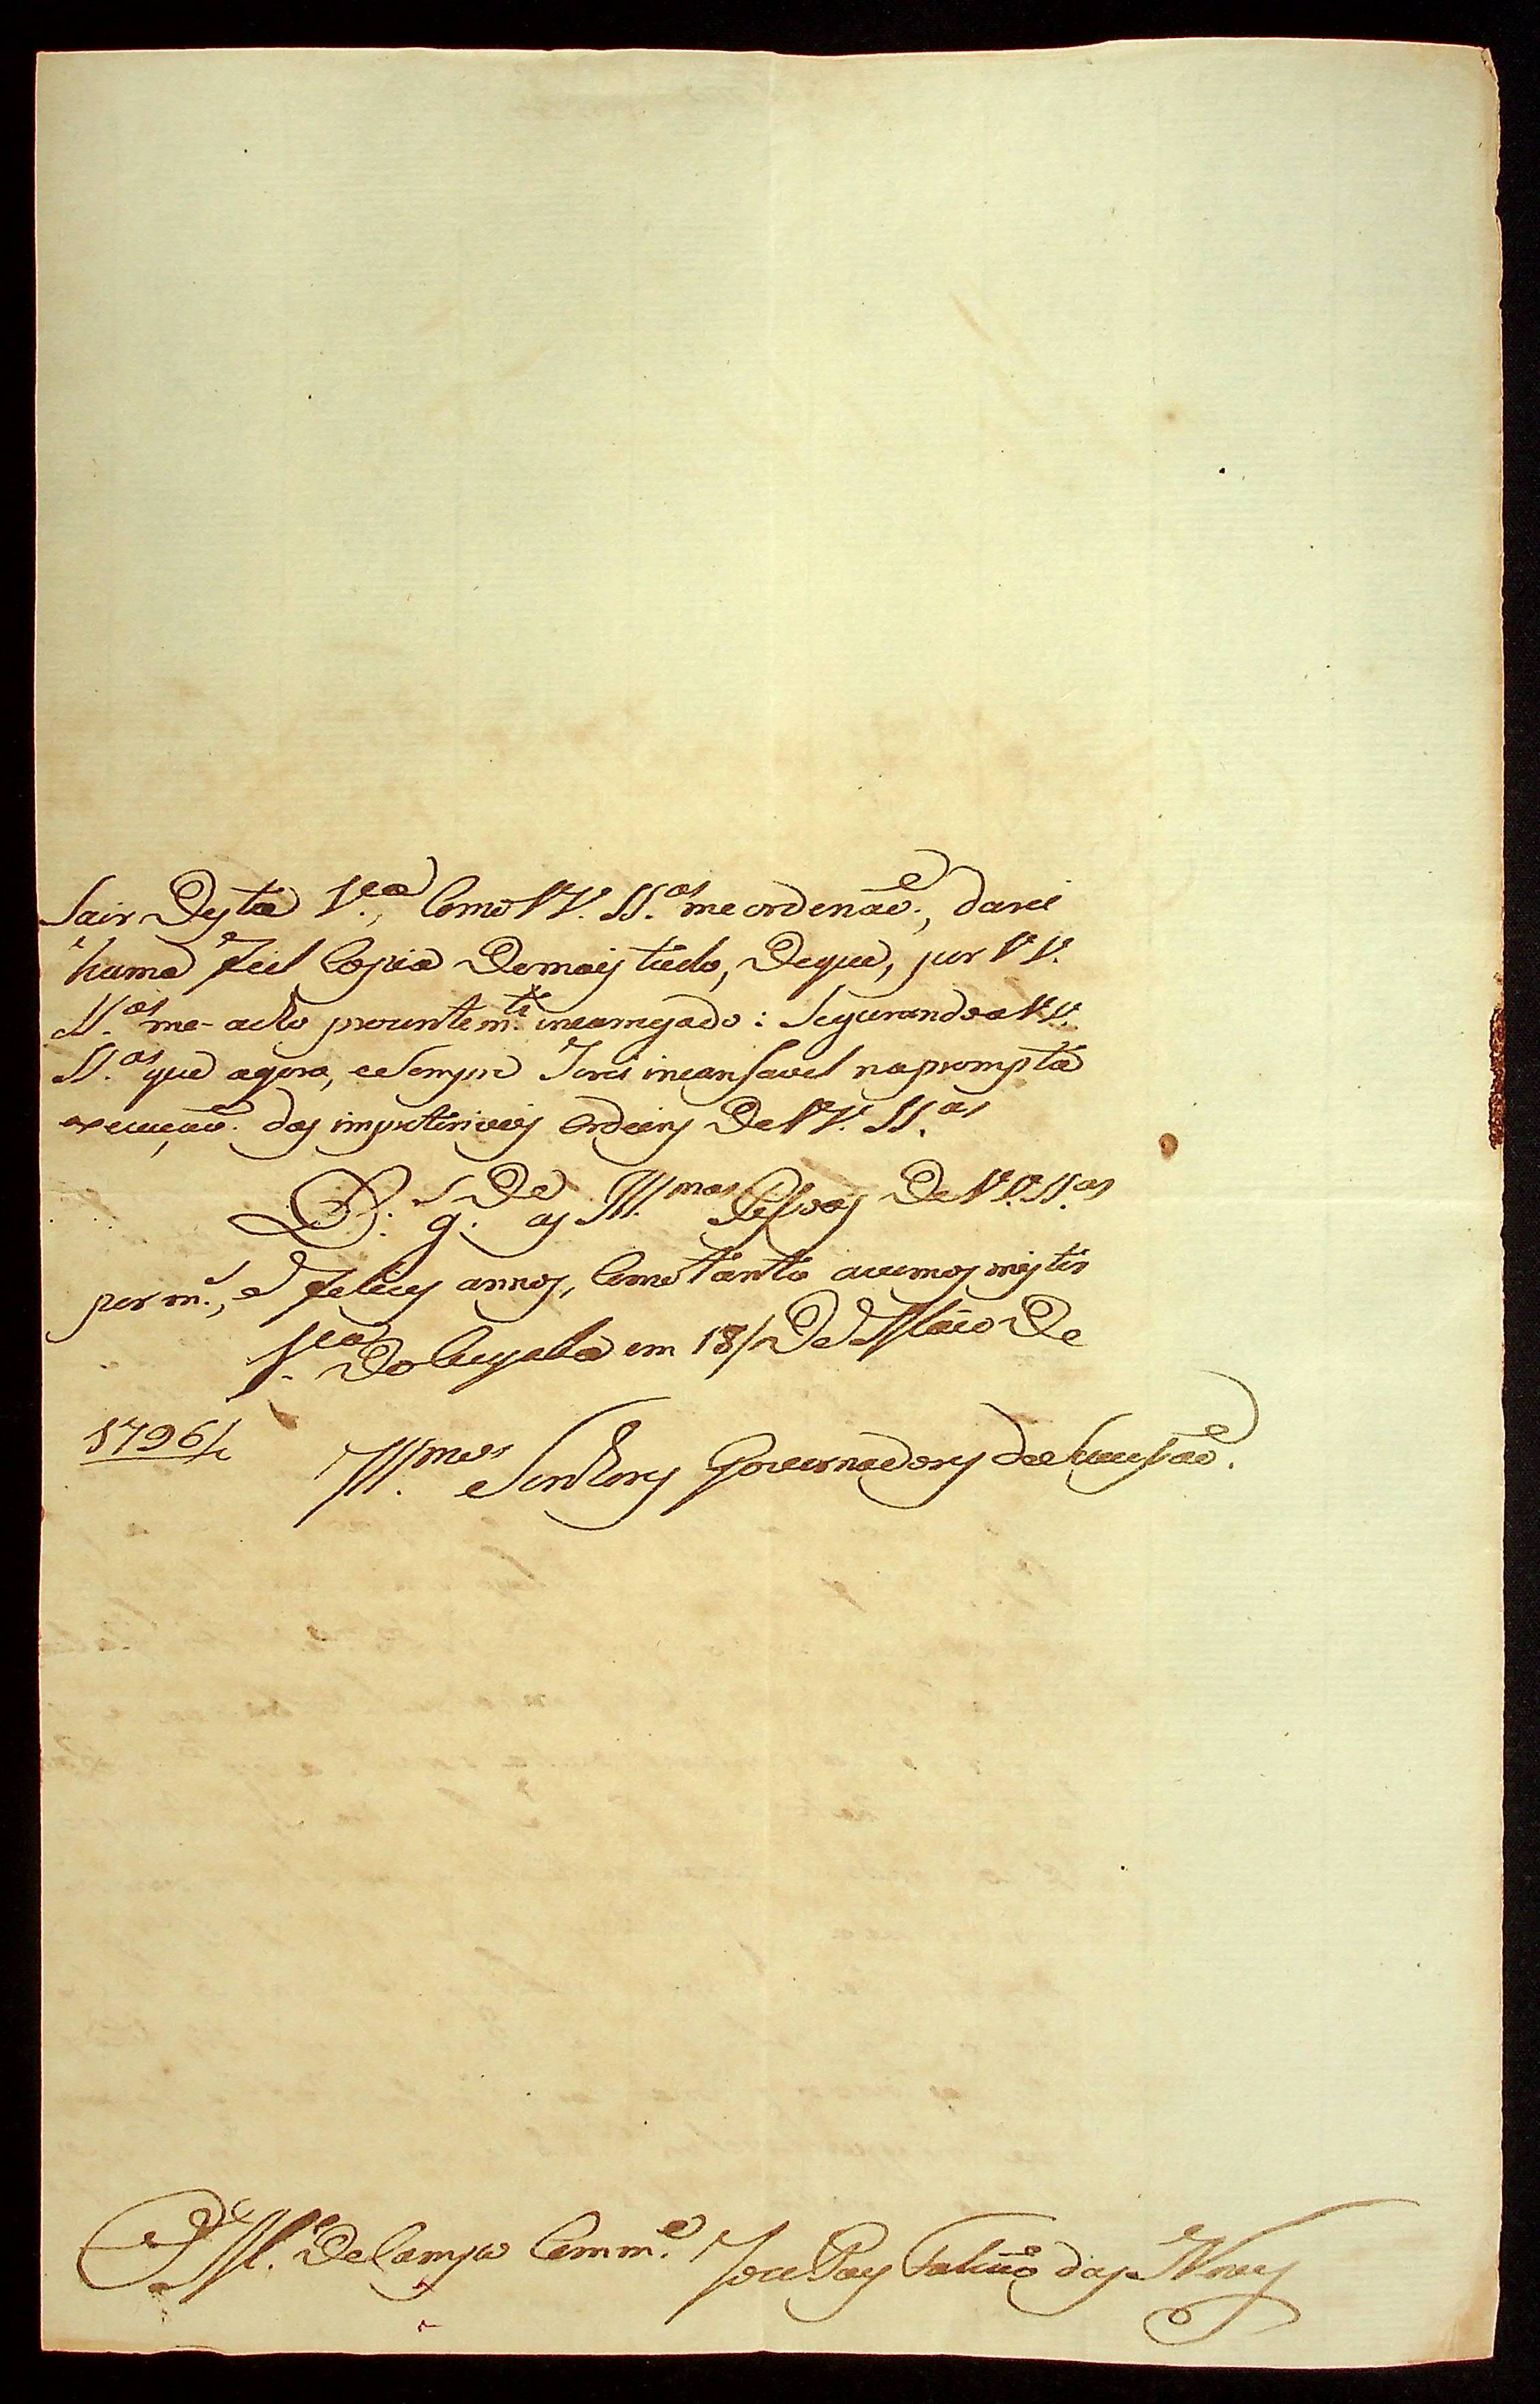 Sair Desta V.ª, Como VV. SS.as me ordenaõ., darei
huma fiel Copia Demais tudo, Deque, por VV.
SS.as me-acho prezentem.te incarregado: Segurando a VV.
SS.as que agora, eSempre Serei incansavel naprompta
execuçaõ. das impreteriveis Ordens De VV. SS.as
D.s g.de as Ill.mas Pessoas De VV. SS.as
por m.s, e felices annos, Como tanto avemos mister
V.ª Do Cuyabá em 18/ De Maio De
1796/
Ill.mos Senhores Governadores da Sucessaõ.
O M.e De Campo Comm.e Joze Paes Falcaõ das Neves